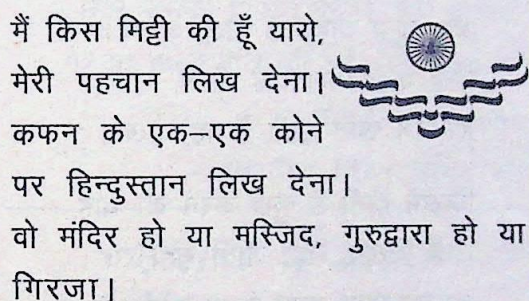 मैं किस मिट्टी की हूँ यारो,
मेरी पहचान लिख देना।
कफन के एक–एक कोने
पर हिन्दुस्तान लिख देना।
वो मंदिर हो या मस्जिद, गुरुद्वारा हो या
गिरजा।